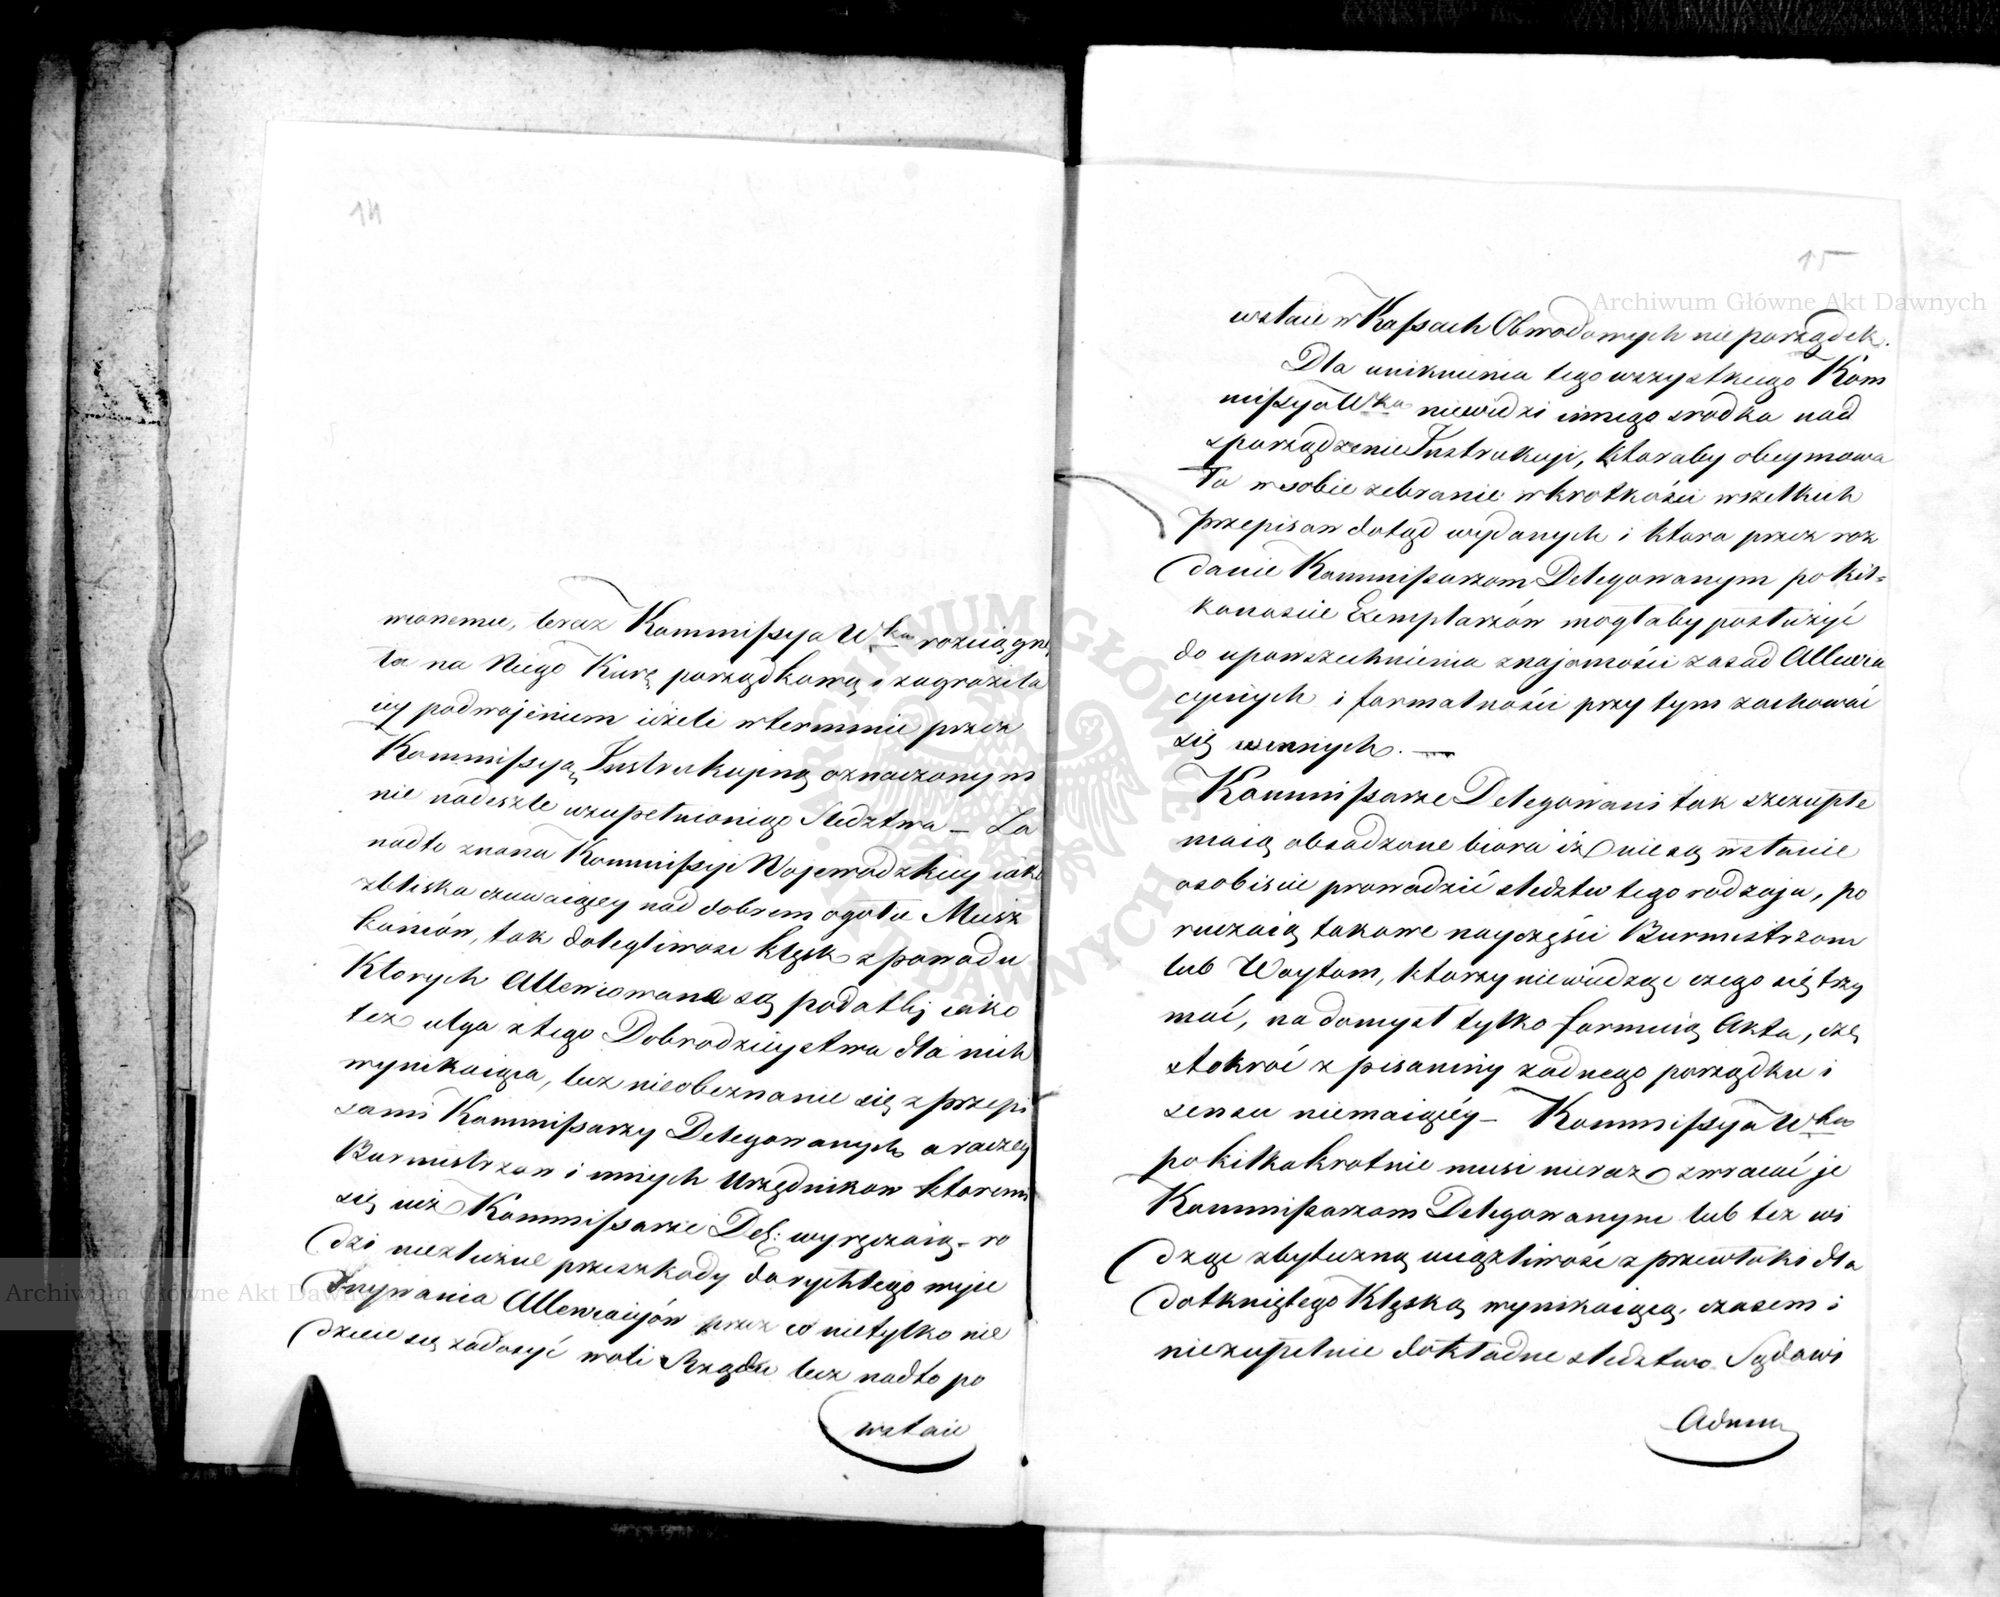 14
wionemu, teraz Kommissya Wka rozciągnę
ła na Niego Karę porządkową i zagroziła
iey podwojeniem ieżeli w terminie przez
Kommissyą Instrukcyiną oznaczonym
nie nadeszle uzupełnionego Sledztwa — Za
nadto znana Kommissyi Wojewodzkiey iako
zbliska czuwaiącey nad dobrem ogołu Miesz
kańców, tak dolegliwosc klęsk z powodu
Ktorych Allewiowane są podatki iako
tez ulga z tego Dobrodzieystwa dla nich
wynikaiąca, lecz nieobeznanie się z przepi
sami Kommissarzy Delegowanych a raczey
Burmistrzow i innych Urzędnikow ktoremi
się iuż Kommissarze Del: wyręczaią – ro
dzi niezliczne przeszkody do rychłego wyie
dnywania Allewiacyów przez co nietylko nie
dzieie się zadosyć woli Rządu lecz nadto po
wstaie
15
wstaie w Kassach Obwodowych nieporządek.
Dla uniknienia tego wszystkiego Kom
missya Wka niewidzi innego srodka nad
sporządzenie Instrukcyi, ktoraby obeymowa
ła w sobie zebranie w krotkości wszelkich
przepisow dotąd wydanych i ktora przez roz
danie Kommissarzom Delegowanym po kil=
kanascie Exemplarzów mogłaby posłużyć
do upowszechnienia znajomości zasad Allewia
cyinych i formalności przy tym zachować
się winnych. —
Kommissarze Delegowani tak szczupłe
maią obsadzone biora iż nie są wstanie
osobiscie prowadzić sledztw tego rodzaju, po
ruczaią takowe nayczęści Burmistrzom
lub Woytom, ktorzy niewiedząc czego się trzy
mać, na domysł tylko formuią Akta, czę
stokroć z pisaniny żadnego porządku i
sensu niemaiącéy – Kommissya Wka
po kilkakrotnie musi nieraz zwracać je
Kommissarzom Delegowanym lub tez wi
dząc zbyteczną uciążliwość z przewłoki dla
dotkniętego Klęską wynikaiącą, czasem i
niezupełnie dokładne sledztwo Sądowi
Admi
Archiwum Główne Akt Dawnych
Archiwum Główne Akt Dawnych
ARCHIWUM GŁÓWNE AKT DAWNYCH